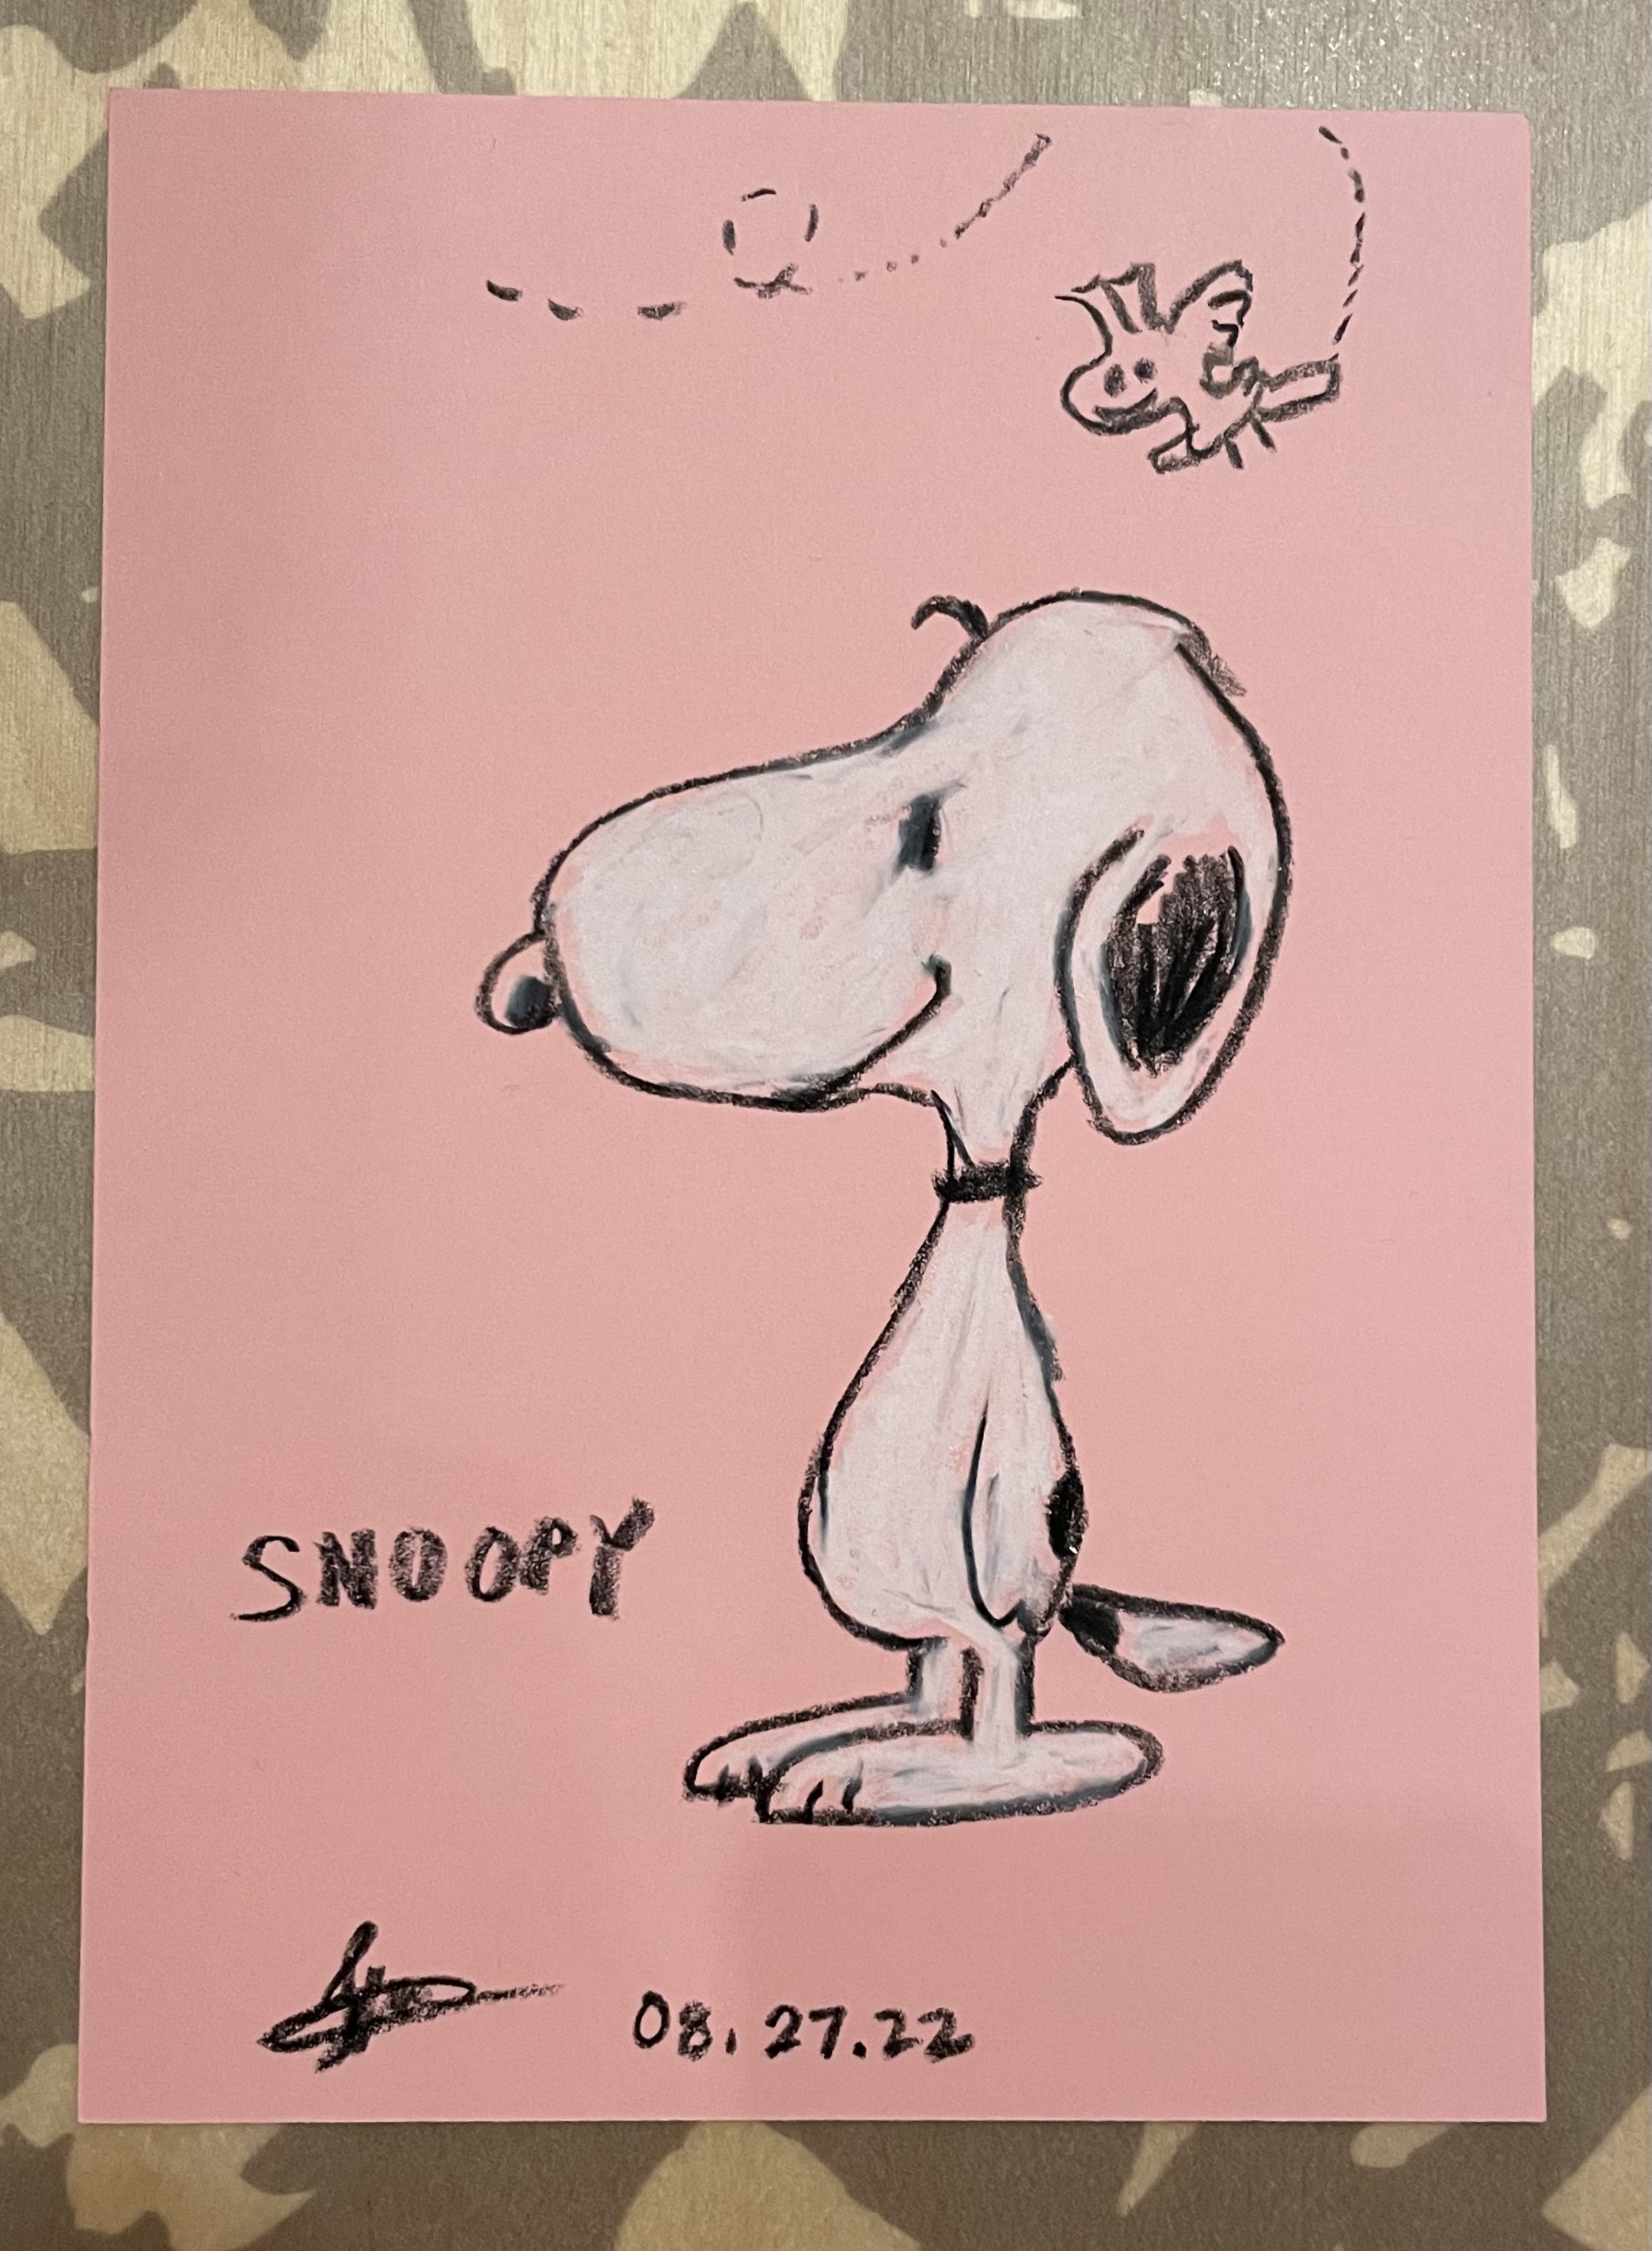 SNOOPY
08.27.22